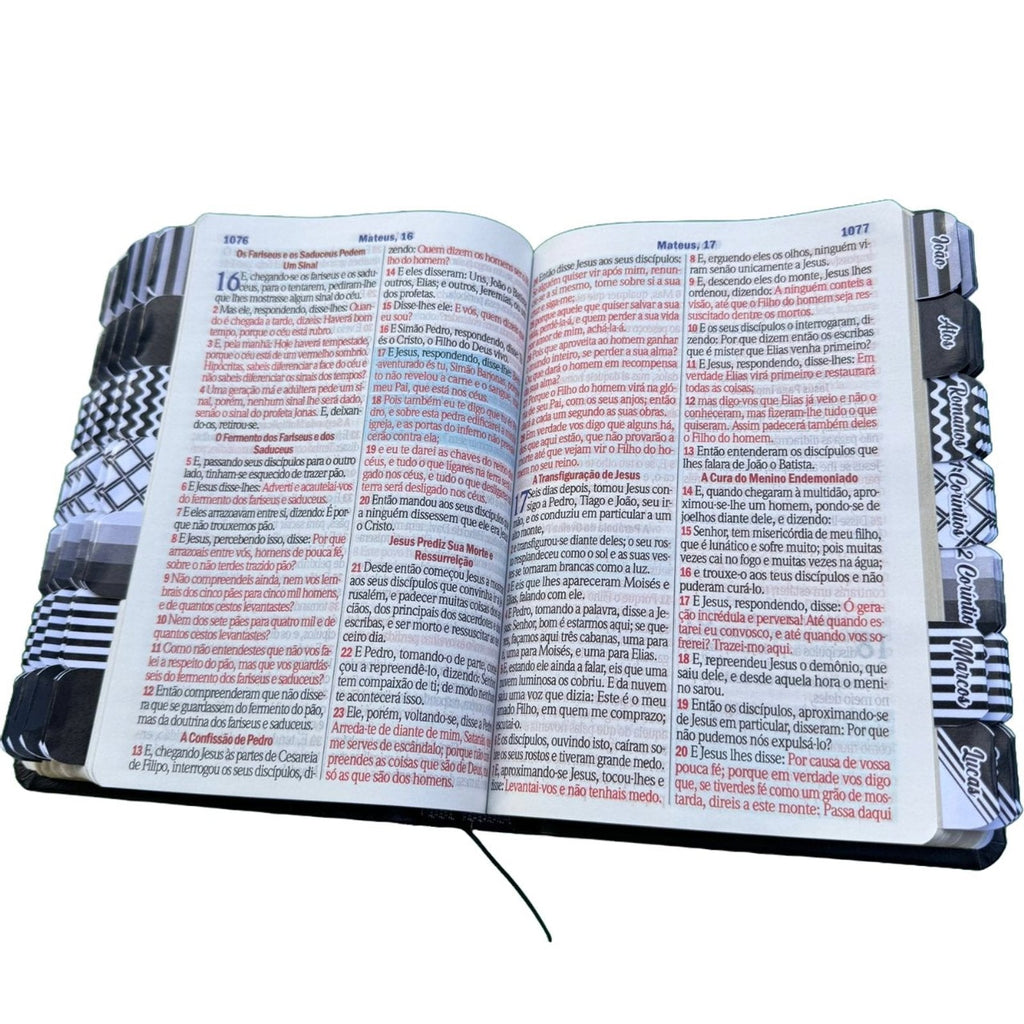 1076
Mateus, 16
Os Fariseus e os Saduceus Pedem
Um Sinal
16 E, chegando-se os fariseus e os sadu-
ceus, para o tentarem, pediram-lhe
que lhes mostrasse algum sinal do céu.
2 Mas ele, respondendo, disse-lhes: Quan-
do é chegada a tarde, dizeis: Haverá bom
tempo, porque o céu está rubro.
3 E, pela manhã: Hoje haverá tempestade,
porque o céu está de um vermelho sombrio.
Hipócritas, sabeis diferenciar a face do céu e
não sabeis diferenciar os sinais dos tempos?
4 Uma geração má e adúltera pede um si-
nal, porém, nenhum sinal lhe será dado,
senão o sinal do profeta Jonas. E, deixan-
do-os, retirou-se.
O Fermento dos Fariseus e dos
Saduceus
5 E, passando seus discípulos para o outro
lado, tinham-se esquecido de trazer pão.
6 E Jesus disse-lhes: Adverti e acautelai-vos
do fermento dos fariseus e saduceus.
7 E eles arrazoavam entre si, dizendo: É por-
que não trouxemos pão.
8 E Jesus, percebendo isso, disse: Por que
arrazoais entre vós, homens de pouca fé,
sobre o não terdes trazido pão?
9 Não compreendeis ainda, nem vos lem-
brais dos cinco pães para cinco mil homens,
e de quantos cestos levantastes?
10 Nem dos sete pães para quatro mil e de
quantos cestos levantastes?
11 Como não entendestes que não vos fa-
lei a respeito do pão, mas que vos guardás-
seis do fermento dos fariseus e saduceus?
12 Então compreenderam que não disse-
ra que se guardassem do fermento do pão,
mas da doutrina dos fariseus e saduceus.
A Confissão de Pedro
13 E, chegando Jesus às partes de Cesareia
de Filipo, interrogou os seus discípulos, di-
zendo: Quem dizem os homens ser o
lho do homem?
14 E eles disseram: Uns, João o Batista
outros, Elias; e outros, Jeremias, ou
dos profetas.
15 Disse-lhes ele: E vós, quem dizeis
eu sou?
16 E Simão Pedro, respondendo, disse:
és o Cristo, o Filho do Deus vivo.
17 E Jesus, respondendo, disse-lhe:
aventurado és tu, Simão Barjonas, porque
to não revelou a carne e o sangue,
meu Pai, que está nos céus.
18 Pois também eu te digo que tu
dro, e sobre esta pedra edificarei a
igreja, e as portas do inferno não
cerão contra ela;
19 e eu te darei as chaves do reino
céus, e tudo o que ligares na terra
gado nos céus, e tudo o que desligares
terra será desligado nos céus.
20 Então mandou aos seus discípulos
a ninguém dissessem que ele era
o Cristo.
Jesus Prediz Sua Morte e
Ressurreição
21 Desde então começou Jesus a
aos seus discípulos que convinha
rusalém, e padecer muitas coisas
ciãos, dos principais dos sacerdotes
escribas, e ser morto e ressuscitar
ceiro dia.
22 E Pedro, tomando-o de parte,
çou a repreendê-lo, dizendo: Senhor,
tem compaixão de ti; de modo nenhum
te acontecerá isso.
23 Ele, porém, voltando-se, disse a Pedro:
Arreda-te de diante de mim, Satanás,
me serves de escândalo; porque não
preendes as coisas que são de Deus,
só as que são dos homens.
Mateus, 17
1077
Então disse Jesus aos seus discípulos:
alguém quiser vir após mim, renun-
a si mesmo, tome sobre si a sua
e siga-me;
porque aquele que quiser salvar a sua
perdê-la-á, e quem perder a sua vida
de mim, achá-la-á.
Pois que aproveita ao homem ganhar
mundo inteiro, se perder a sua alma?
dará o homem em recompensa
sua alma?
Porque o Filho do homem virá na gló-
de seu Pai, com os seus anjos; então
a cada um segundo as suas obras.
Em verdade vos digo que alguns há,
que aqui estão, que não provarão a
te até que vejam vir o Filho do ho-
m no seu reino.
A Transfiguração de Jesus
17 Seis dias depois, tomou Jesus con-
sigo a Pedro, Tiago e João, seu ir-
mão, e os conduziu em particular a um
monte,
e transfigurou-se diante deles; o seu ros-
resplandeceu como o sol e as suas ves-
se tornaram brancas como a luz.
E eis que lhes apareceram Moisés e
Elias, falando com ele.
E Pedro, tomando a palavra, disse a Je-
Senhor, bom é estarmos aqui; se que-
façamos aqui três cabanas, uma para
uma para Moisés, e uma para Elias.
estando ele ainda a falar, eis que uma
nuvem luminosa os cobriu. E da nuvem
saiu uma voz que dizia: Este é o meu
amado Filho, em quem me comprazo;
escutai-o.
E os discípulos, ouvindo isto, caíram so-
os seus rostos e tiveram grande medo.
E, aproximando-se Jesus, tocou-lhes e
disse: Levantai-vos e não tenhais medo.
8 E, erguendo eles os olhos, ninguém vi-
ram senão unicamente a Jesus.
9 E, descendo eles do monte, Jesus lhes
ordenou, dizendo: A ninguém conteis a
visão, até que o Filho do homem seja res-
suscitado dentre os mortos.
10 E os seus discípulos o interrogaram, di-
zendo: Por que dizem então os escribas
que é mister que Elias venha primeiro?
11 E Jesus, respondendo, disse-lhes: Em
verdade Elias virá primeiro e restaurará
todas as coisas;
12 mas digo-vos que Elias já veio e não o
conheceram, mas fizeram-lhe tudo o que
quiseram. Assim padecerá também deles
o Filho do homem.
13 Então entenderam os discípulos que
lhes falara de João o Batista.
A Cura do Menino Endemoniado
14 E, quando chegaram à multidão, apro-
ximou-se-lhe um homem, pondo-se de
joelhos diante dele, e dizendo:
15 Senhor, tem misericórdia de meu filho,
que é lunático e sofre muito; pois muitas
vezes cai no fogo e muitas vezes na água;
16 e trouxe-o aos teus discípulos e não
puderam curá-lo.
17 E Jesus, respondendo, disse: Ó gera-
ção incrédula e perversa! Até quando es-
tarei eu convosco, e até quando vos so-
frerei? Trazei-mo aqui.
18 E, repreendeu Jesus o demônio, que
saiu dele, e desde aquela hora o meni-
no sarou.
19 Então os discípulos, aproximando-se
de Jesus em particular, disseram: Por que
não pudemos nós expulsá-lo?
20 E Jesus lhes disse: Por causa de vossa
pouca fé; porque em verdade vos digo
que, se tiverdes fé como um grão de mos-
tarda, direis a este monte: Passa daqui
João
Atos
Romanos
1 Coríntios
2 Coríntio
Marcos
Lucas